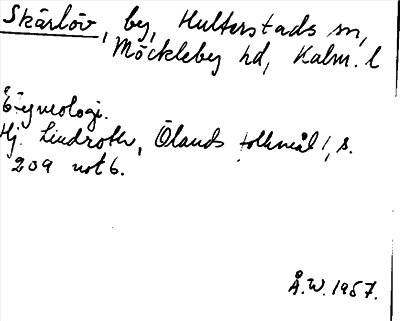 Skärlöv, by, Hulterstads sn,
Möckleby hd, Kalm. l
Etymologi.
Hj. Lindroth, Ölands folkmål 1, s.
209 not 6.
Å.W. 1957.